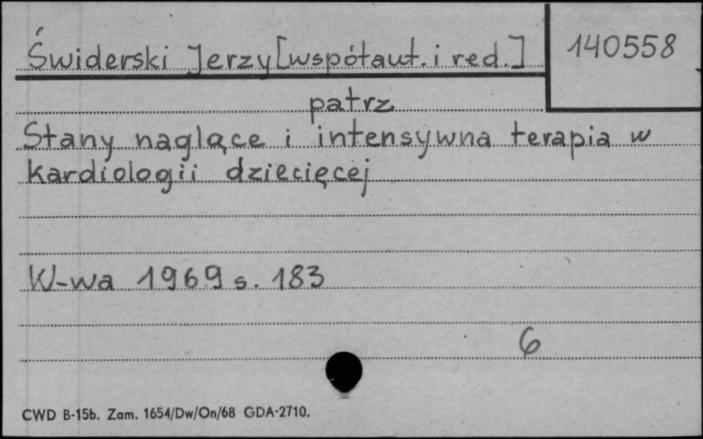 Świderski Jerzy [współaut. i red.]
140558
patrz
Stany naglące i intensywna terapia w
kardiologii dziecięcej
W-wa 1969 s. 183
6
CWD B-15b. Zam. 1654/Dw/On/68 GDA-2710.